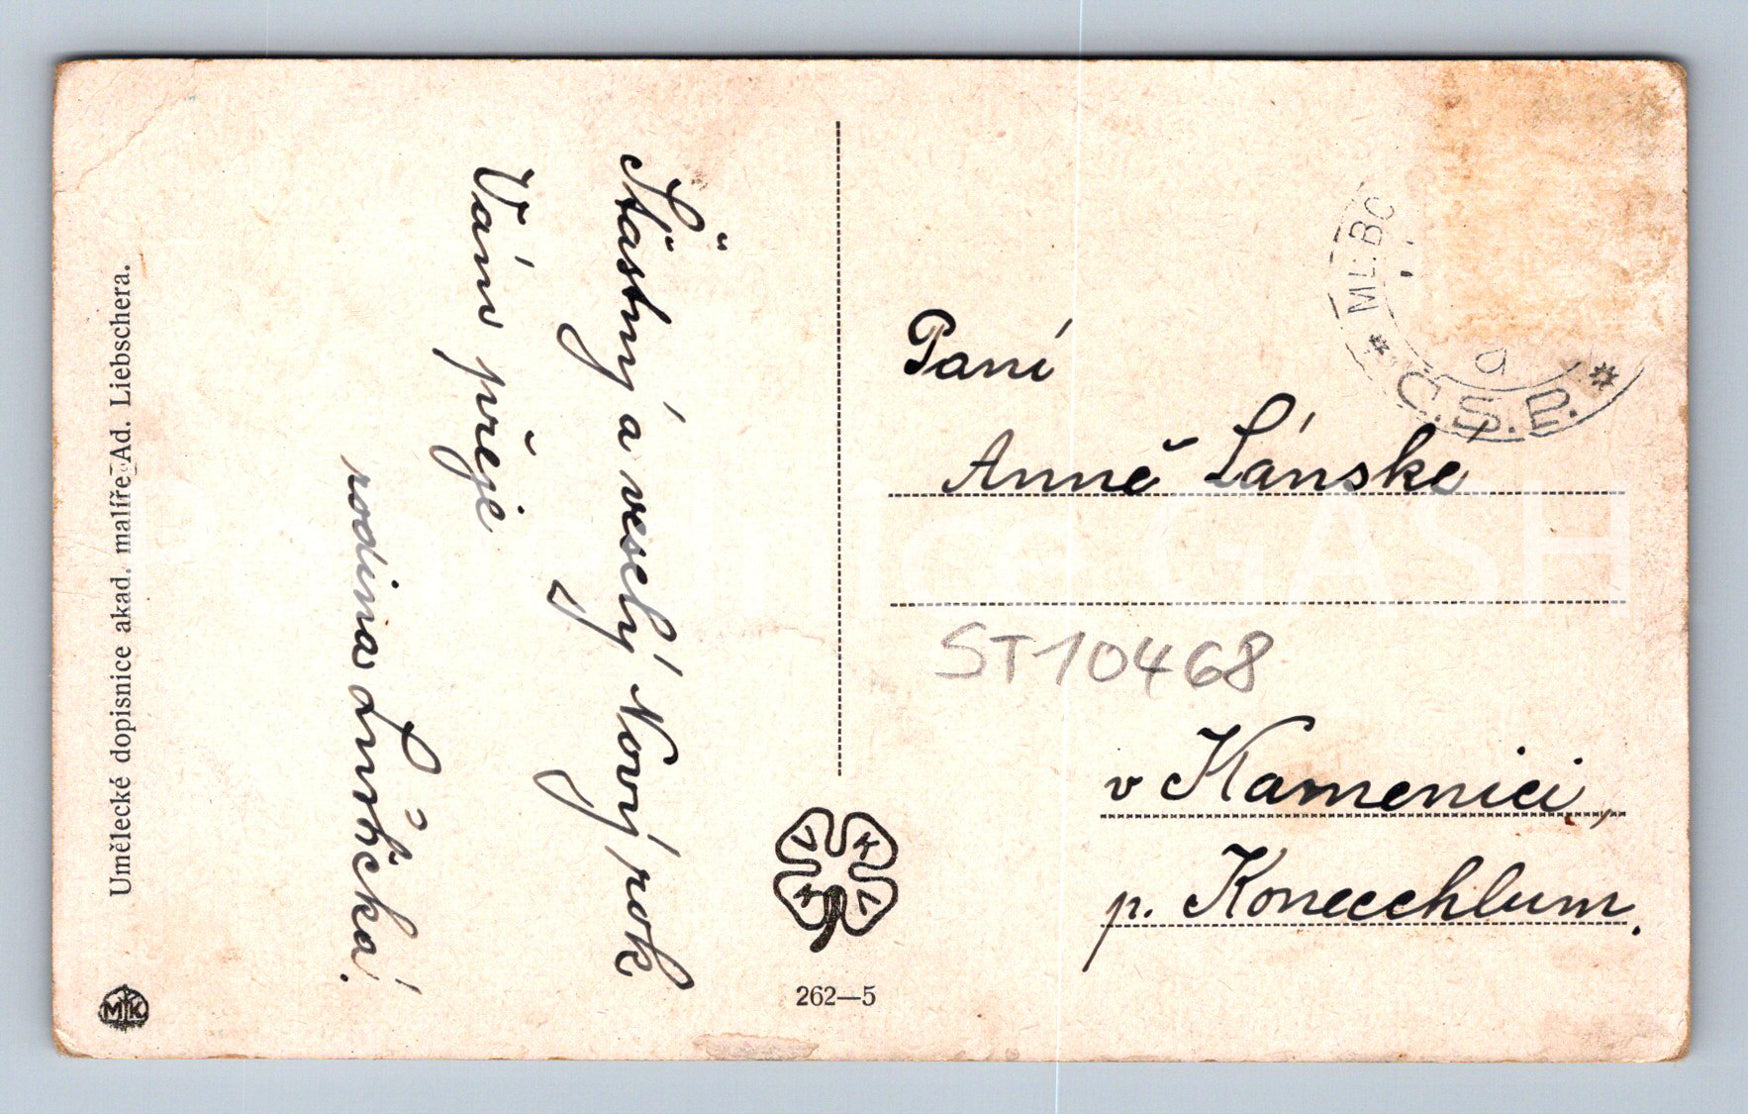 Umělecké dopisnice akad. malíře Ad. Liebschera.
MK
Šťastný a veselý Nový rok
Vám přeje
rodina
262—5
V K K V
ML. BO
Č.S.P.
a
Paní
Anně Lánské
ST10468
v Kamenici,
p. Konecchlum.